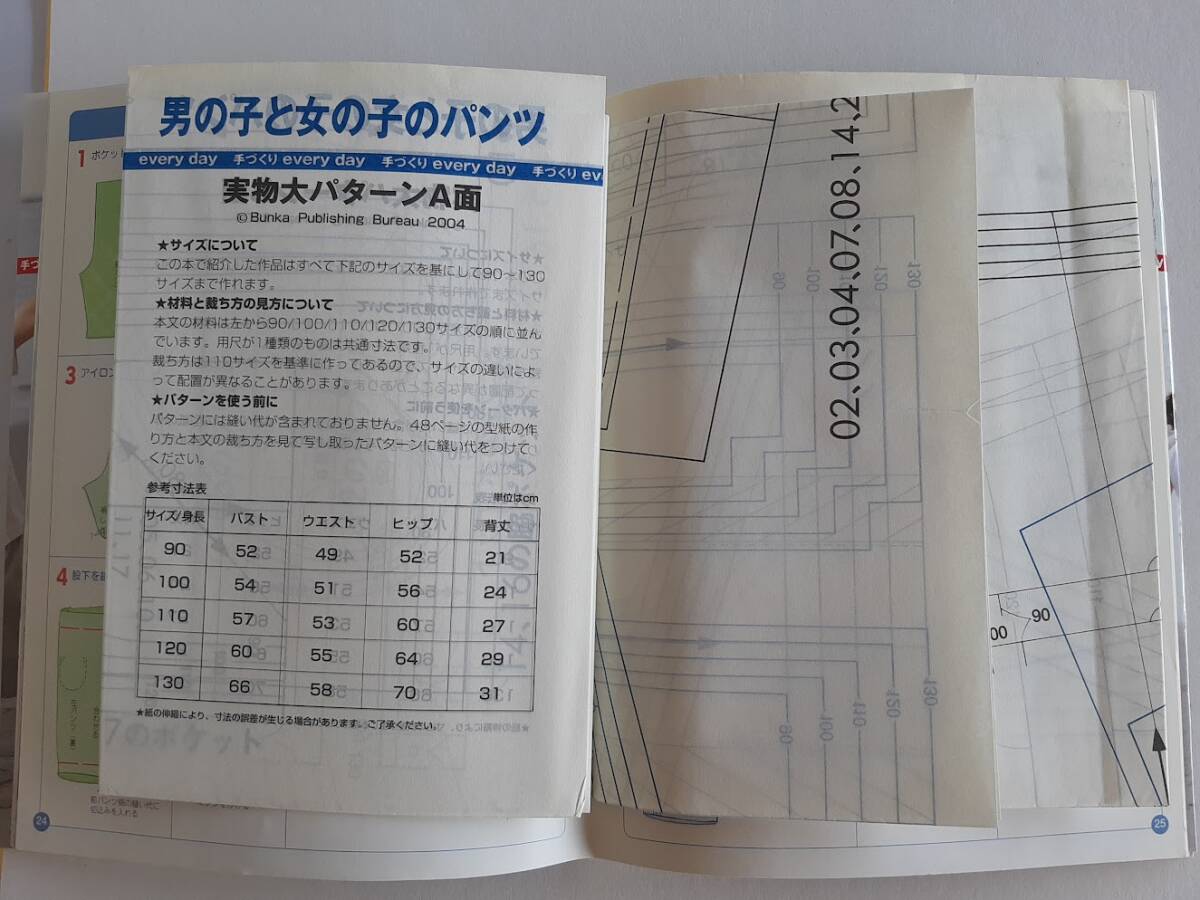 男の子と女の子のパンツ
every day 手づくり every day 手づくり every day 手づくり ev
実物大パターンA面
©Bunka Publishing Bureau 2004
★サイズについて
この本で紹介した作品はすべて下記のサイズを基にして90~130
サイズまで作れます。
★材料と裁ち方の見方について
本文の材料は左から90/100/110/120/130サイズの順に並ん
でいます。用尺が1種類のものは共通寸法です。
裁ち方は110サイズを基準に作ってあるので、サイズの違いによ
って配置が異なることがあります。
★パターンを使う前に
パターンには縫い代が含まれておりません。48ページの型紙の作
り方と本文の裁ち方を見て写し取ったパターンに縫い代をつけて
ください。
参考寸法表 単位はcm
サイズ/身長 バスト ウエスト ヒップ 背丈
90 52 49 52 21
100 54 51 56 24
110 57 53 60 27
120 60 55 64 29
130 66 58 70 31
★紙の伸縮により、寸法の誤差が生じる場合があります。ご了承ください。
7のポケット
1 ポケット
3 アイロン
4 股下を
左パンツ(裏)
前パンツ側の縫い代に
切込みを入れる
24
02.03.04.07.08.14.2
90
100
110
120
130
90
100
110
120
130
00
90
25